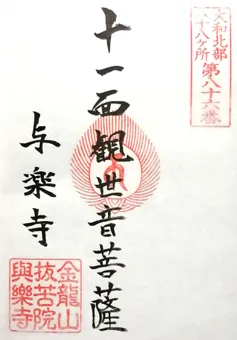 大和北部
八十八ヶ所
第八十六番
十一面觀世音菩薩
与楽寺
金龍山
抜苦院
與樂寺